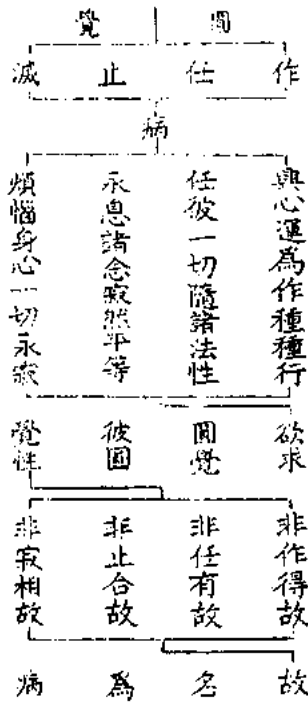 圓覺
作任止滅
病
與心運為作種種行
任彼一切隨諸法性
永息諸念寂然平等
煩惱身心一切永寂
欲求
圓覺
彼圓
覺性
非作得故
非任有故
非止合故
非寂相故
故名爲病